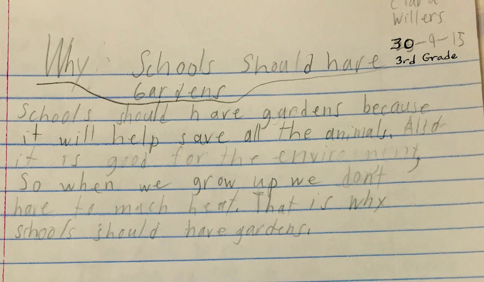 Willers
30-9-15
3rd Grade
Why Schools should have
Gardens
Schools should have gardens because
it will help save all the animals. And
it is good for the environment,
So when we grow up we don't
have to much heat. That is why
schools should have gardens.